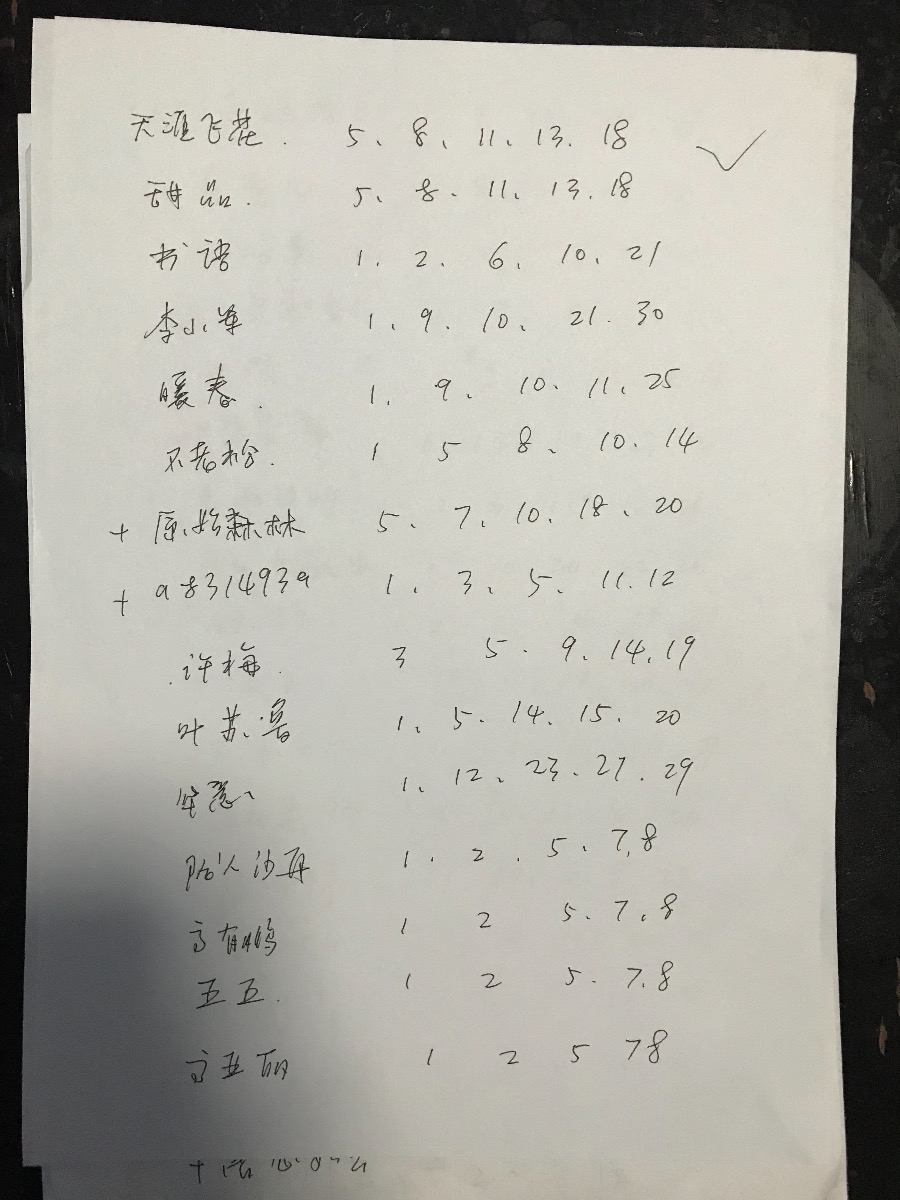 天涯飞花. 5、8、11、13.18
甜品. 5、8.11、13.18
书语 1.2.6、10、21
李小军 1、9.10、21.30
暖春. 1.9.10、11、25
不老松. 1 5 8、10.14
+ 原始森林 5、7、10、18、20
+ a831493a 1.3、5、11.12
许梅. 3 5.9.14.19
叶苏鲁 1、5.14.15.20
1、12、23.27.29
沙再 1.2.5.7.8
高有鹏 1 2 5.7.8
五五. 1 2 5.7.8
高亚丽 1 2 5 78